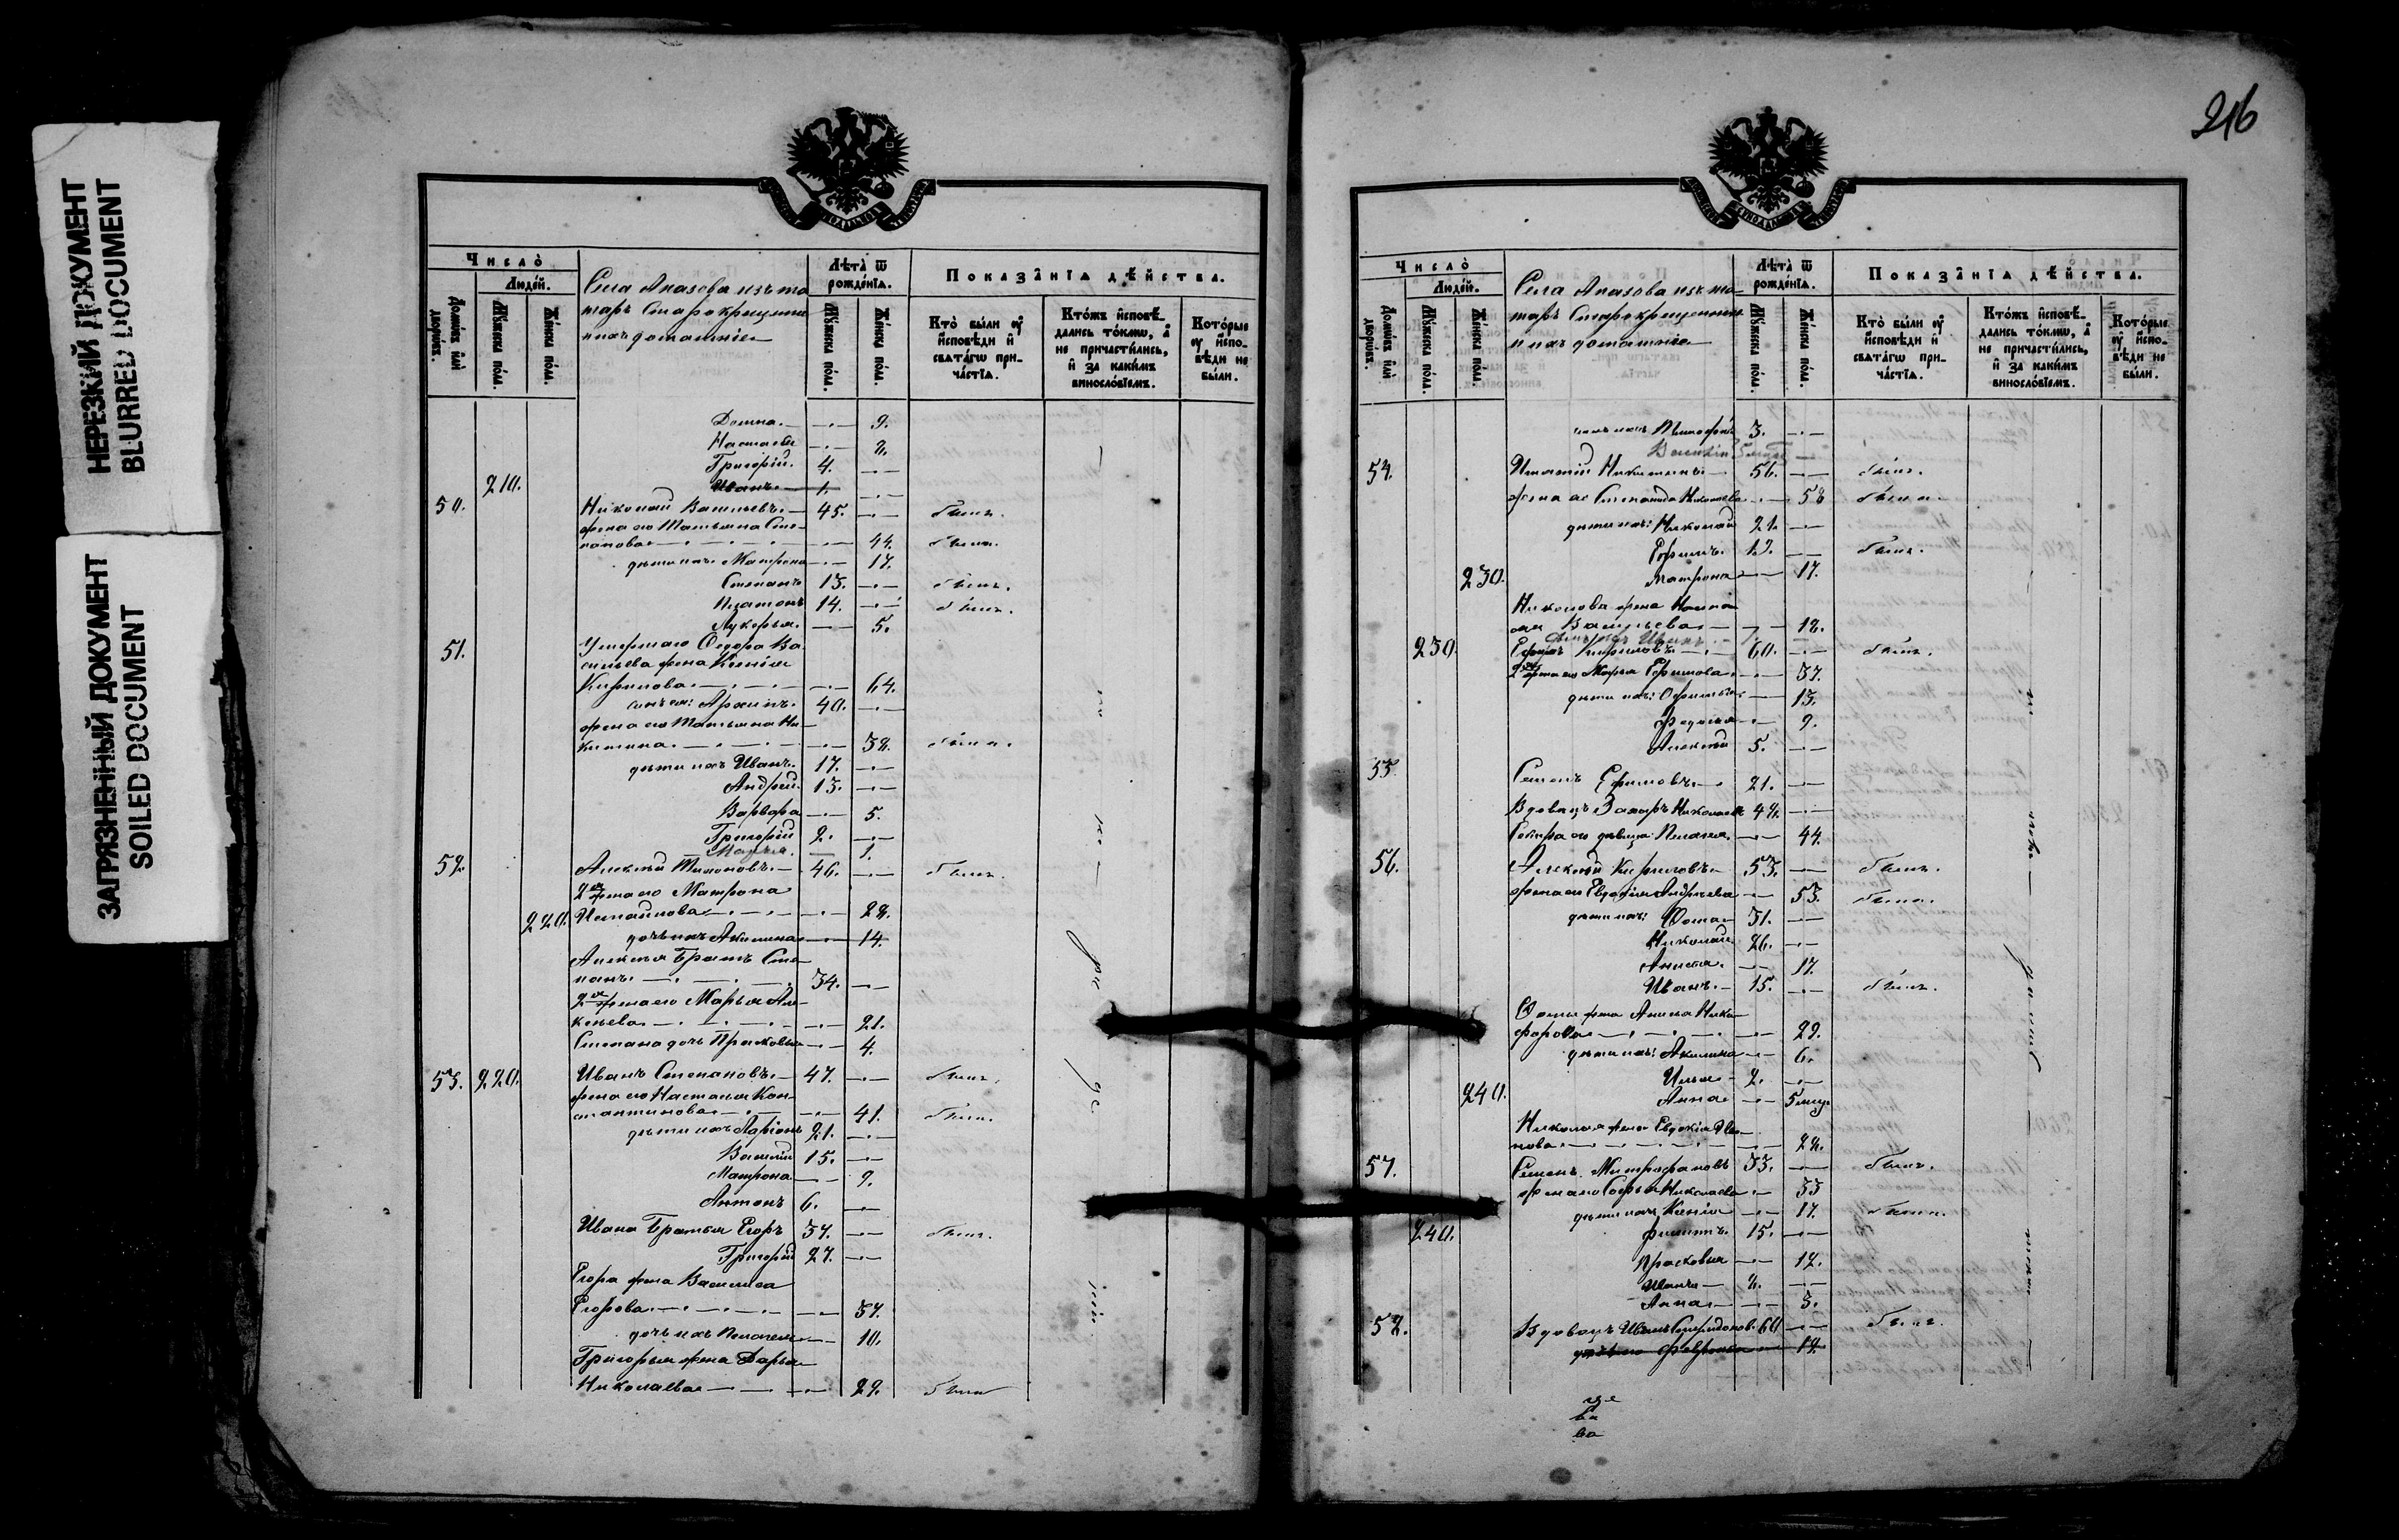 НЕРЕЗКИЙ ДОКУМЕНТ
BLURRED DOCUMENT
ЗАГРЯЗНЕННЫЙ ДОКУМЕНТ
SOILED DOCUMENT
Число̀
Люде́й.
Домѡ́въ и҆лѝ дворѡ́въ.
Мꙋ́жеска по́ла.
Же́нска по́ла.
Села Апазова изъ та
таръ Старокрещенн
ныхъ домашніе
Лѣта̀ ѿ рожде́нїѧ.
Мꙋ́жеска по́ла.
Же́нска по́ла.
Показа̑нїѧ дѣ́йства.
Кто̀ бы́ли оу҆ и҆сповѣ́ди и҆ свѧта́гѡ при-ча́стїѧ.
Кто́жъ и҆сповѣ́-дались то́кмѡ, а҆ не причасти́лись, и҆ за каки́мъ виносло́вїемъ.
Кото́рые оу҆ и҆спо-вѣ́ди не бы́ли.
Домна. 9.
Настасья 8.
Григорій. 4.
210. Иванъ. 1.
50. Николай Васильевъ. 45. былъ.
жена его Татьяна Сте-
панова 44. была.
дѣти ихъ: Матрона 17.
Степанъ 15. былъ.
Платонъ 14. былъ.
Лукерья. 5.
51. Умершаго Ѳедора Ва
сильева жена Ксенія
Кирилова 64.
сынъ ея: Архипъ. 40.
жена его Татьяна Ни-
китина. 38. была.
дѣти ихъ Иванъ. 17.
Андрей. 13.
Варвара 5.
Григорій 2.
Марья. 1.
52. Алексѣй 46. былъ.
2я жена его Матрона
220. Измайлова 28.
дочь ихъ Акилина 14.
Алексѣя братъ Сте-
панъ 34.
2я жена его Марья Але-
ксѣева 21.
Степана дочь Прасковья 4.
53. 220. Иванъ Степановъ. 47. былъ.
жена его Настасья Кон-
стантинова 41. была.
дѣти ихъ Ларіонъ 21.
Василій 15.
Матрона 9.
Антонъ 6.
Ивана братья Егоръ 37. былъ.
Григорій 27.
Егора жена Василиса
Егорова 37.
дочь ихъ Пелагея 10.
Григорья жена Дарья
Николаева 29. была
216
Число̀
Люде́й.
Домѡ́въ и҆лѝ дворѡ́въ.
Мꙋ́жеска по́ла.
Же́нска по́ла.
Села Апазова изъ та-
таръ Старокрещенн
ныхъ домашніе
Лѣта̀ ѿ рожде́нїѧ.
Мꙋ́жеска по́ла.
Же́нска по́ла.
Показа̑нїѧ дѣ́йства.
Кто̀ бы́ли оу҆ и҆сповѣ́ди и҆ свѧта́гѡ при-ча́стїѧ.
Кто́жъ и҆сповѣ́-дались то́кмѡ, а҆ не причасти́лись, и҆ за каки́мъ виносло́вїемъ.
Кото́рые оу҆ и҆спо-вѣ́ди не бы́ли.
сынъ ихъ Тимофей 3.
Василій
54. Игнатій Никитинъ. 56. былъ.
жена его Степанида Николаева 58 была.
дѣти ихъ: Николай 21.
Ефимъ. 19. былъ.
230. Матрона 17.
Николая жена
Васильева 18.
сынъ ихъ Иванъ
230 Кириловъ 60. былъ.
2я жена его Марья Ефимова 37.
дѣти ихъ: 13.
Ѳедосья 9.
Алексѣй 5.
55. Семенъ Ефимовъ. 21.
Вдовецъ Захаръ Николаевъ 48.
Сестра его дѣвица Пелагея. 44.
56. Алексѣй Кириловъ 53. былъ.
жена его Евдокія Андреева 53. была.
дѣти ихъ: Ѳома 31.
Николай 26.
Анисья. 17.
Иванъ. 15. былъ.
Ѳомы жена Анисья Ники-
форова 29.
дѣти ихъ: Акилина 6.
Илья 2.
240. Анна 5 мцъ
Николая жена Евдокія Ива
нова 28.
57. Семенъ Митрофановъ 33. былъ.
жена его Софья Николаева 33
дѣти ихъ Ксенія 17. была.
240. Филипъ. 15.
Прасковья 12.
Иванъ 8.
Анна 3.
58. Вдовецъ Иванъ Спиридонов. 60 былъ.
Февронья 19.